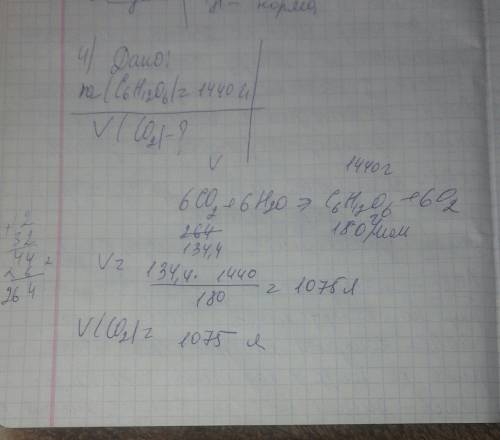 норма
4) Дано:
m(C6H12O6)=1440г
V(CO2)-?
V 1440г
6CO2+6H2O→C6H12O6+6O2
264 180г/моль
134,4
V= 134,4 · 1440
180
= 1075л
V(CO2)= 1075 л
2
32
44
264